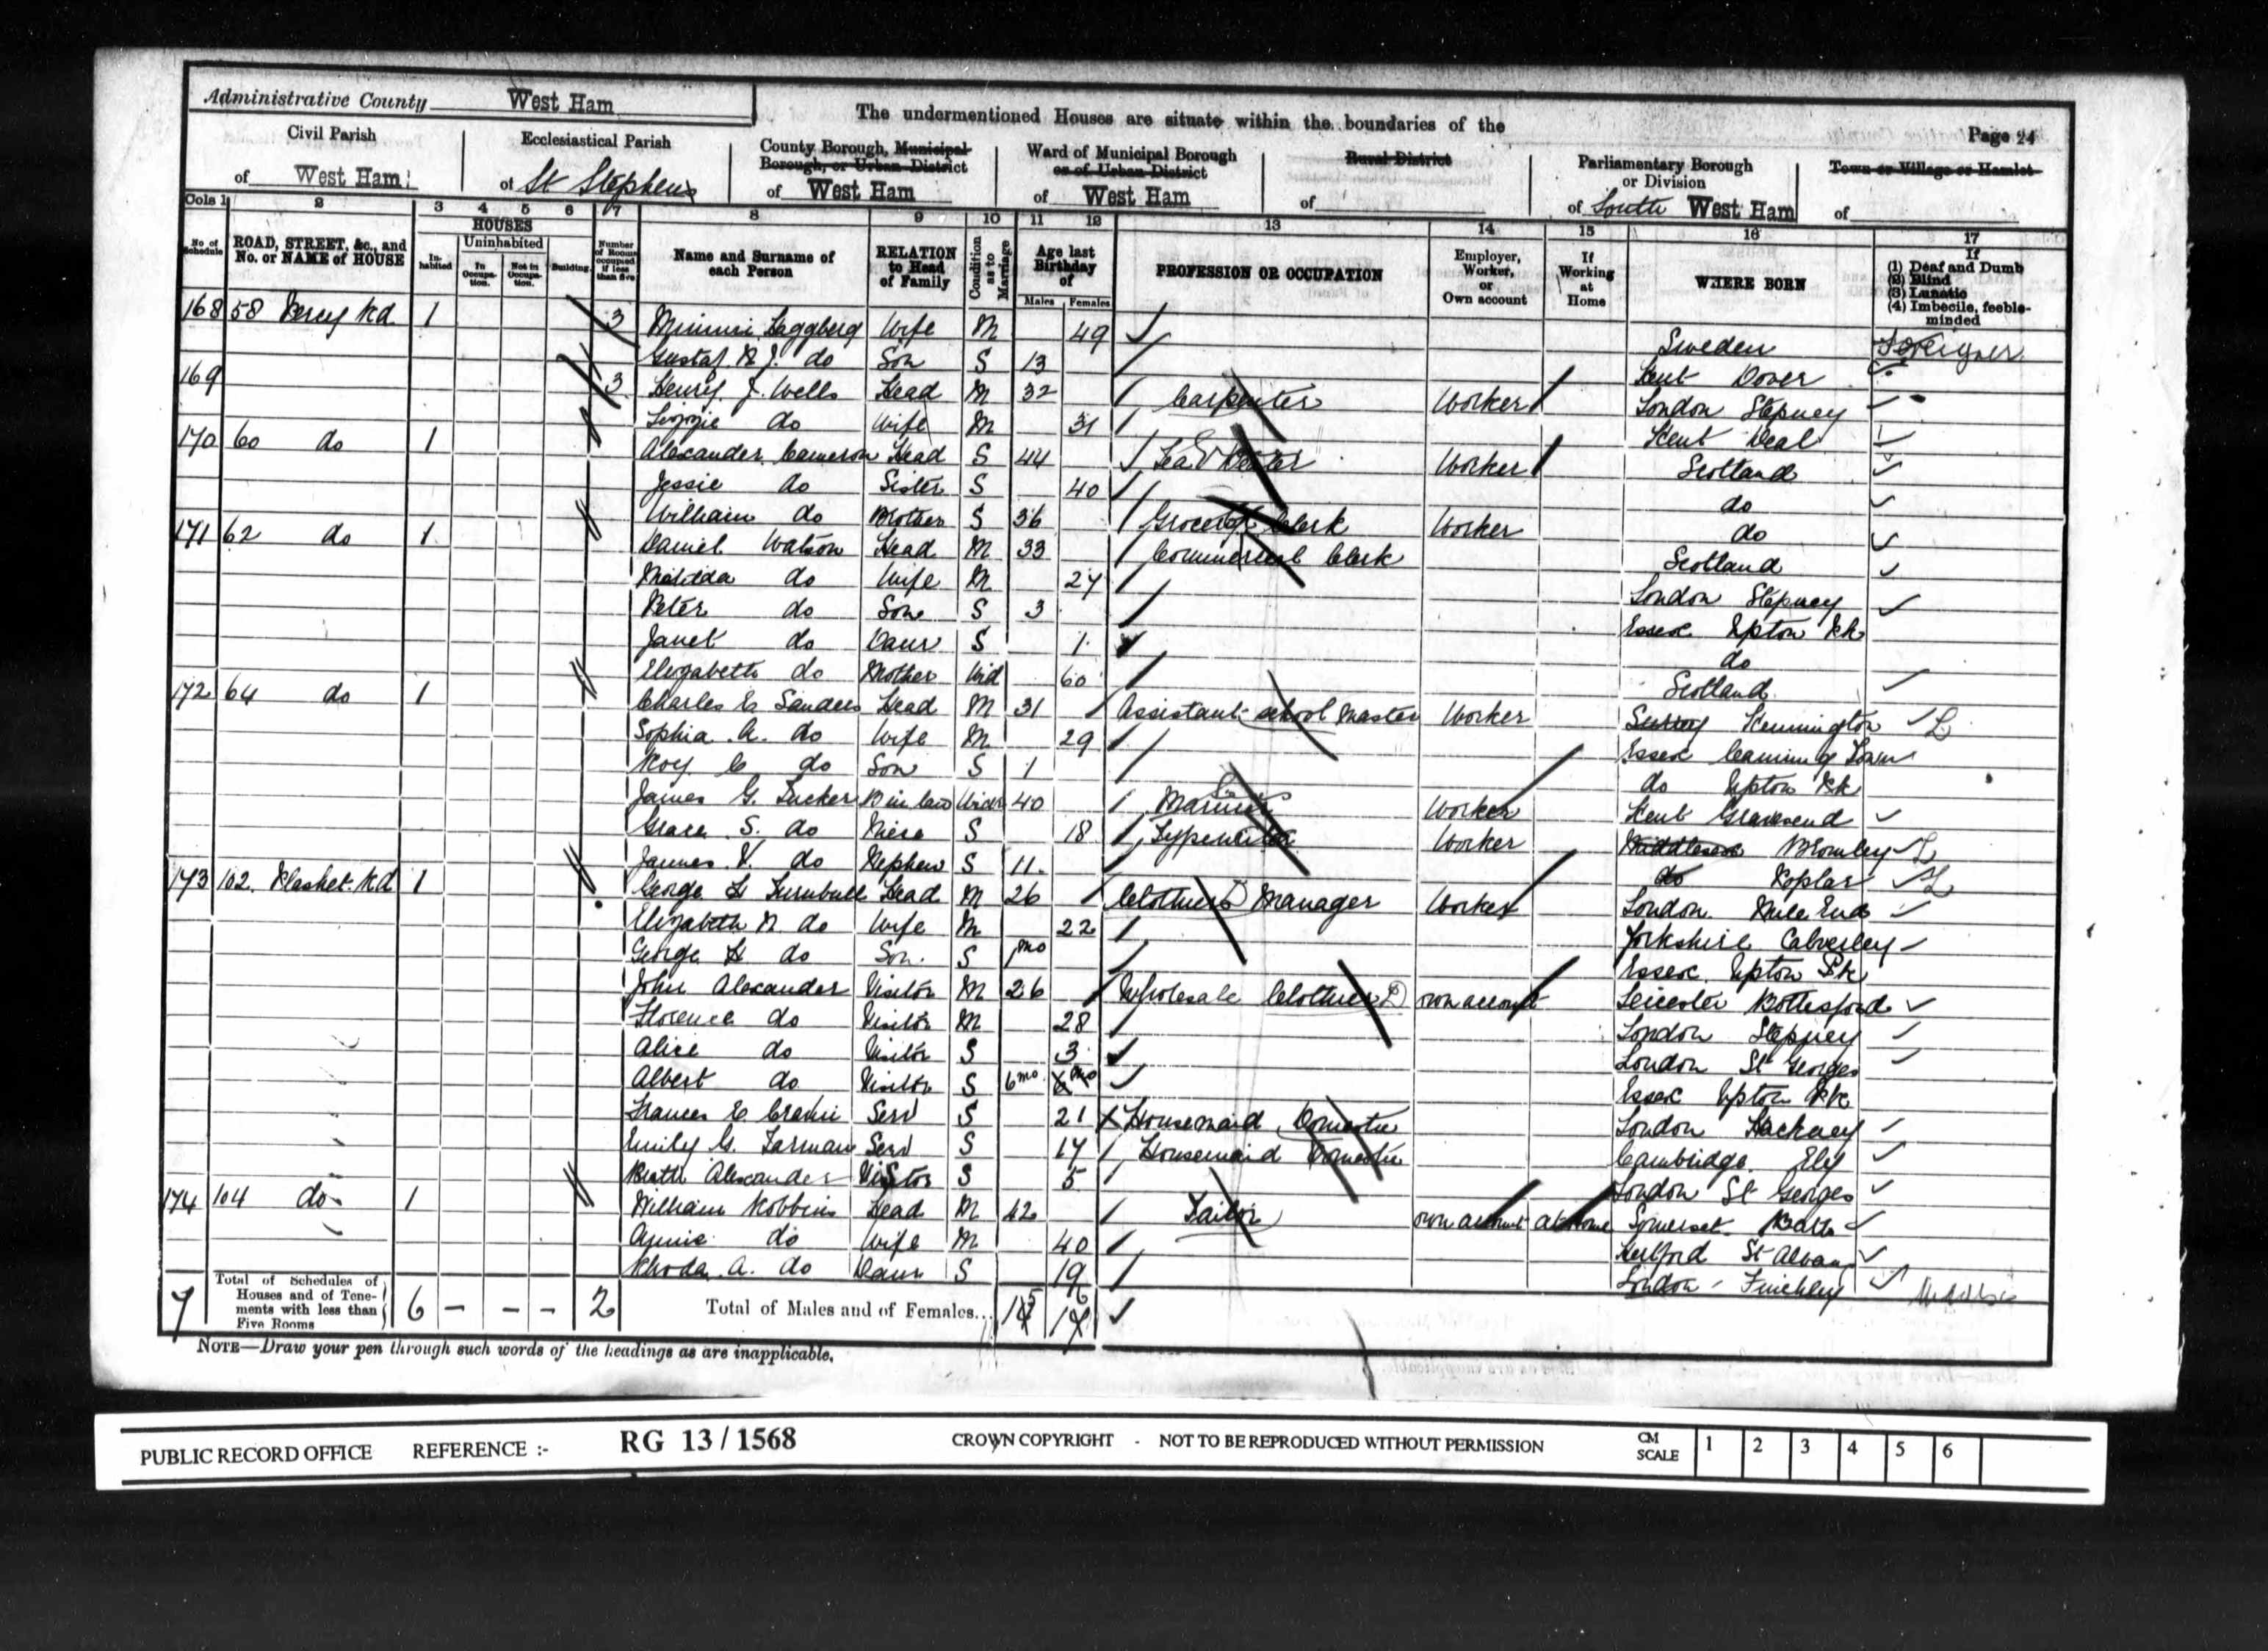 Administrative County West Ham
The undermentioned Houses are situate within the boundaries of the
Page 24
Civil Parish of West Ham
Ecclesiastical Parish of St Stephens
County Borough, Municipal Borough, or Urban District of West Ham
Ward of Municipal Borough or of Urban District of West Ham
Rural District of
Parliamentary Borough or Division of South West Ham
Town or Village or Hamlet of
Cols 1 2 3 4 5 6 7 8 9 10 11 12 13 14 15 16 17
No of Schedule
ROAD, STREET, &c., and No. or NAME of HOUSE
HOUSES
Inhabited
Uninhabited
In Occupation.
Not in Occupation.
Building.
Number of Rooms occupied if less than five
Name and Surname of each Person
RELATION to Head of Family
Condition as to Marriage
Age last Birthday of
Males Females
PROFESSION OR OCCUPATION
Employer, Worker, or Own account
If Working at Home
WHERE BORN
If (1) Deaf and Dumb (2) Blind (3) Lunatic (4) Imbecile, feeble-minded
168 58 Rd 1 3 Wife M 49 Sweden Foreigner
Gustaf do Son S 13 Kent Dover
169 3 Henry J. Wells Head M 32 Carpenter Worker London Stepney
Lizzie do Wife M 31 Kent Deal
170 60 do 1 Alexander Cameron Head S 44 Tea Worker Scotland
Jessie do Sister S 40 do
William do Brother S 36 Grocers Clerk Worker do
171 62 do 1 Daniel Watson Head M 33 Commercial Clerk Scotland
Matilda do Wife M 27 London Stepney
Peter do Son S 3 Essex Upton Pk
Janet do Daur S 1 do
Elizabeth do Mother Wid 60 Scotland
172 64 do 1 Charles E Sanders Head M 31 Assistant school Master Worker Surrey Kennington L
Sophia A. do Wife M 29 Essex Canning Town
Roy C do Son S 1 do Upton Pk
James G. Tucker B in law Widr 40 Mariner Worker Kent Gravesend
Grace S. do Niece S 18 Typewriter Worker Middlesex Bromley L
James V. do Nephew S 11 do Poplar L
173 102 Plashet Rd 1 George H Turnbull Head M 26 Clothiers Manager Worker London Mile End
Elizabeth R do Wife M 22 Yorkshire Calverley
George H do Son S 1mo Essex Upton Pk
John Alexander Visitor M 26 Wholesale Clothier own account Leicester Bottesford
Florence do Visitor M 28 London Stepney
Alice do Visitor S 3 London St Georges
Albert do Visitor S 6mo 6mo Essex Upton Pk
Frances E. Serv S 21 Housemaid Domestic London Hackney
Emily G. Farman Serv S 17 Housemaid Domestic Cambridge Ely
Alexander Visitor S 5 London St Georges
174 104 do 1 William Robbins Head M 42 Tailor own account at home Somerset Bath
Annie do Wife M 40 Hertford St Albans
Rhoda A. do Daur S 19 London Finchley
7 Total of Schedules of Houses and of Tenements with less than Five Rooms 6 - - - 2 Total of Males and of Females...
NOTE—Draw your pen through such words of the headings as are inapplicable.
PUBLIC RECORD OFFICE REFERENCE :- RG 13/1568 CROWN COPYRIGHT - NOT TO BE REPRODUCED WITHOUT PERMISSION CM SCALE 1 2 3 4 5 6